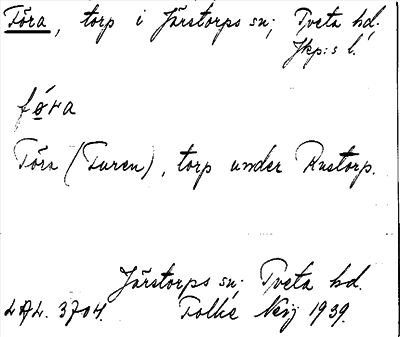 Föra, torp i Järstorps sn; Tveta hd;
Jkp:s l.
fǿra
Föra (Furen), torp under Rustorp.
Järstorps sn; Tveta hd.
LAL. 3704. Folke Neij 1939.